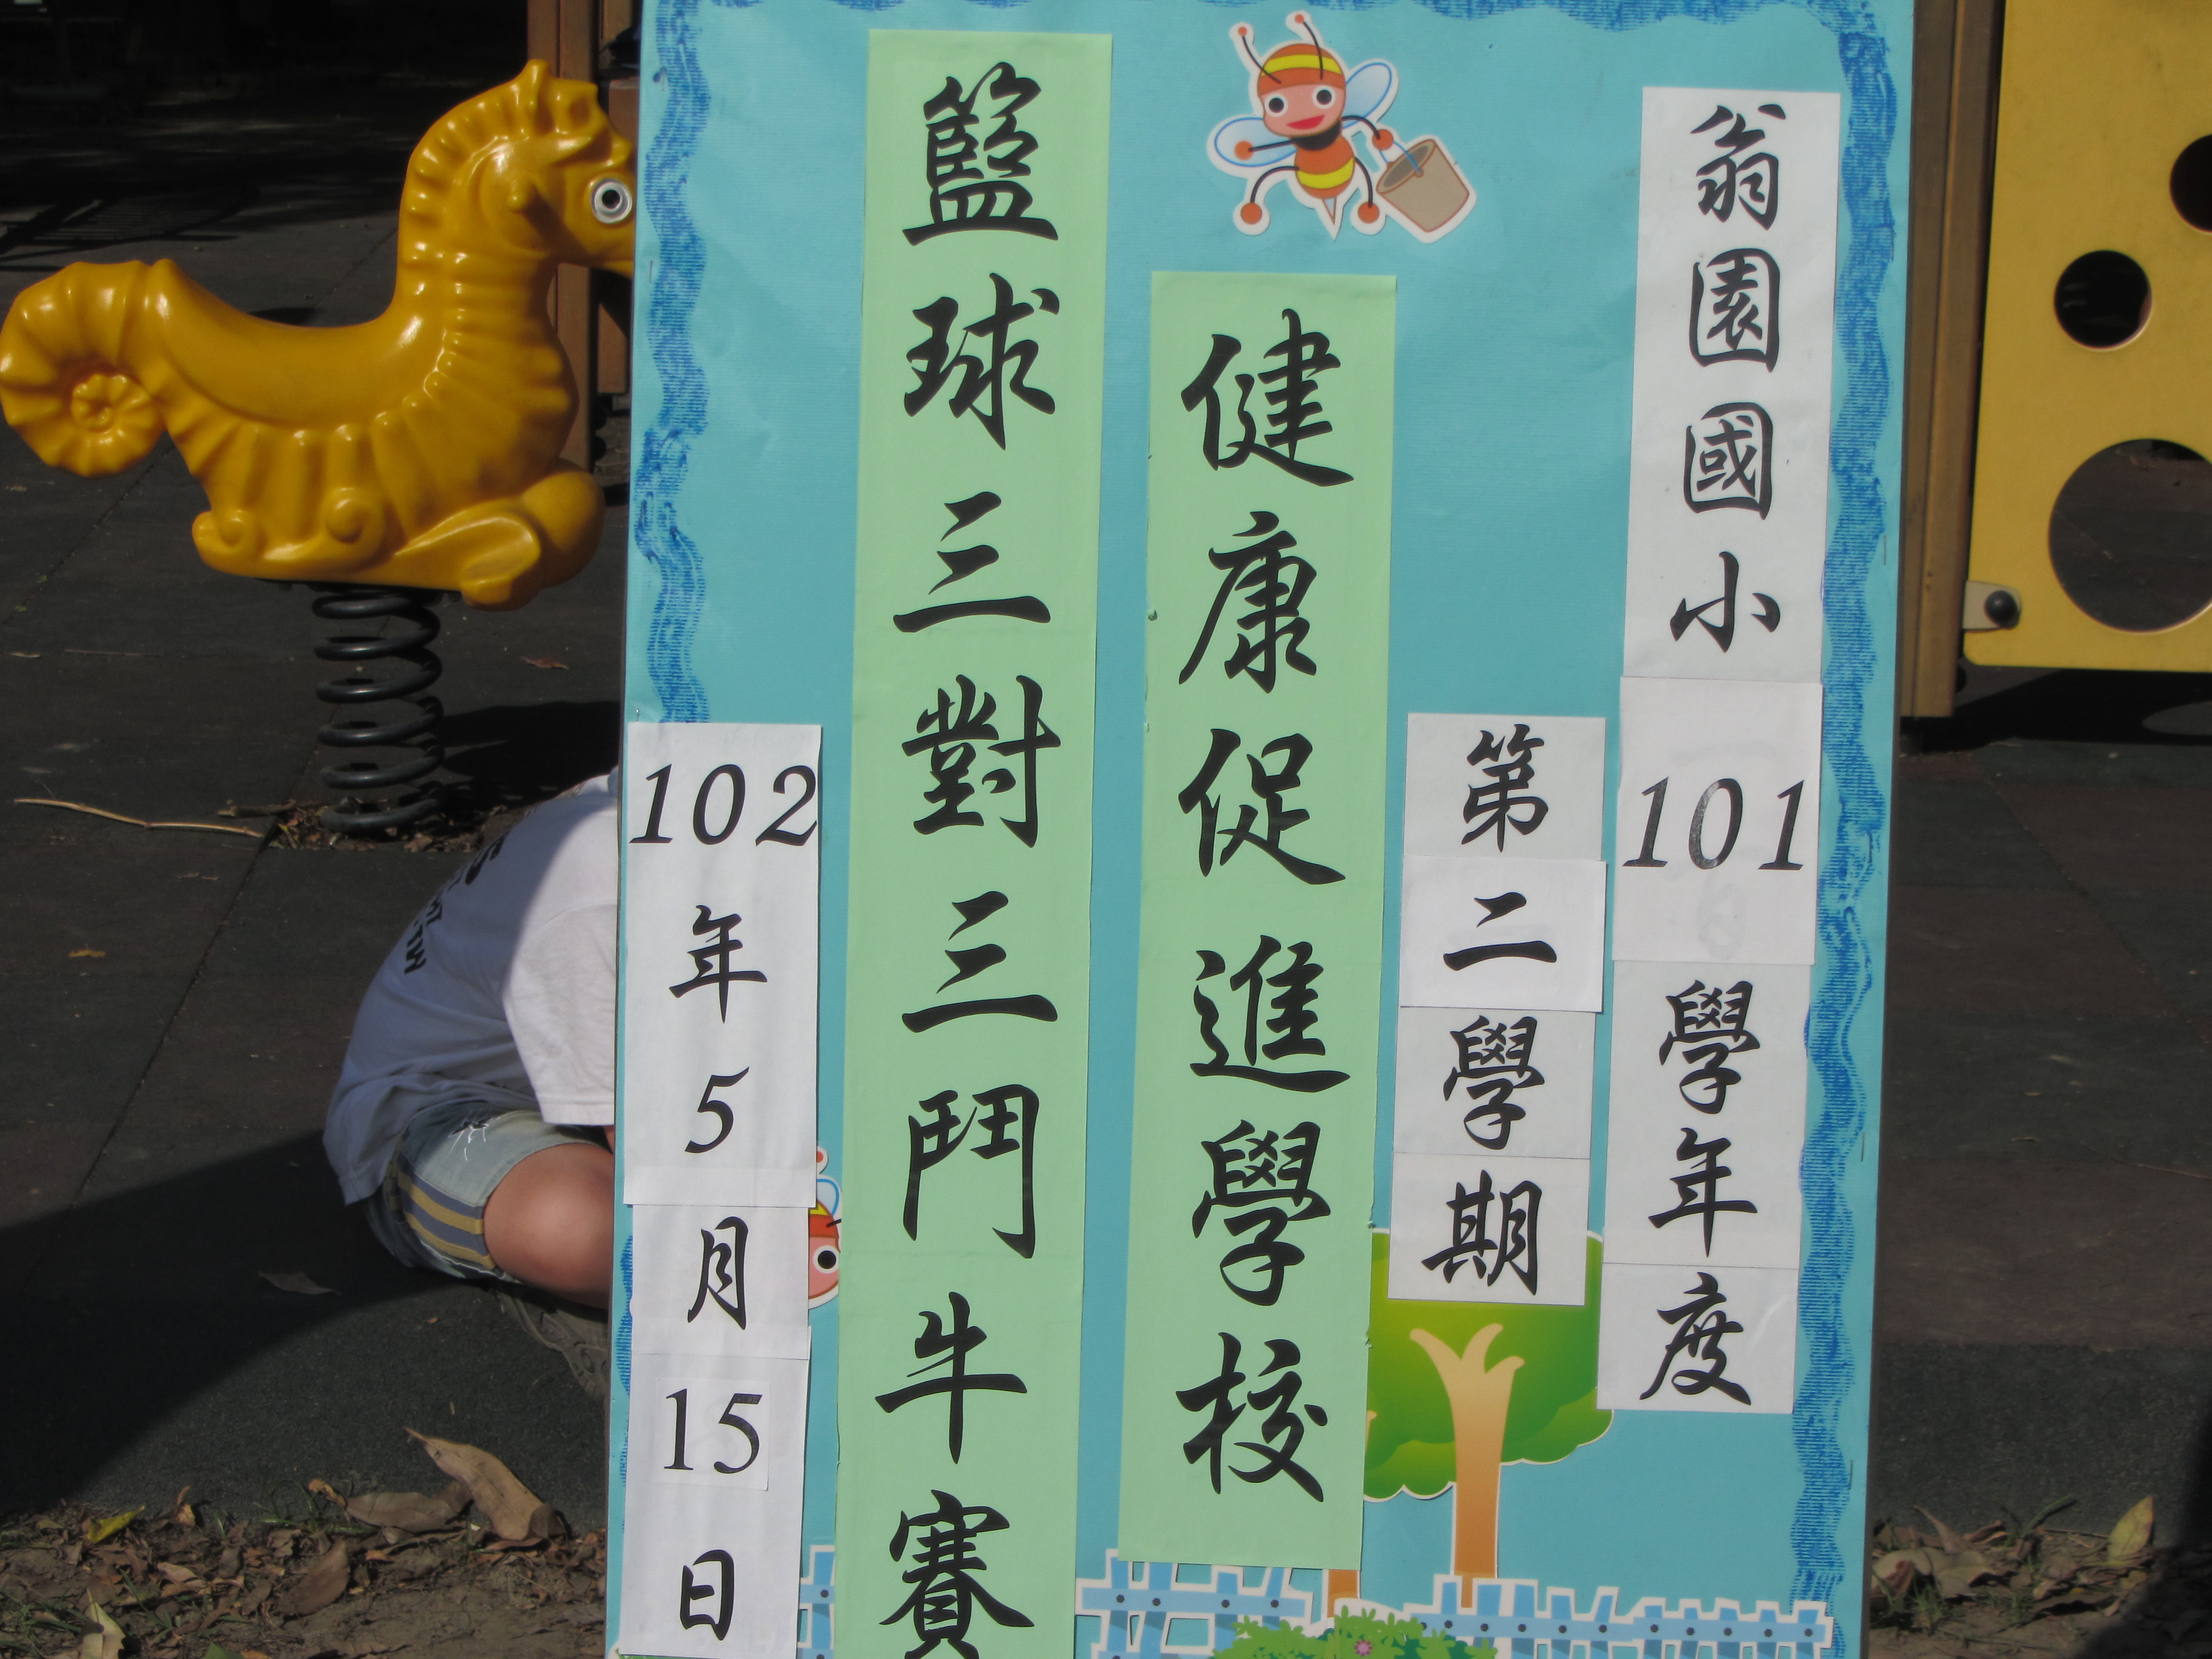 翁園國小101學年度
第二學期
健康促進學校
籃球三對三鬥牛賽
102年5月15日